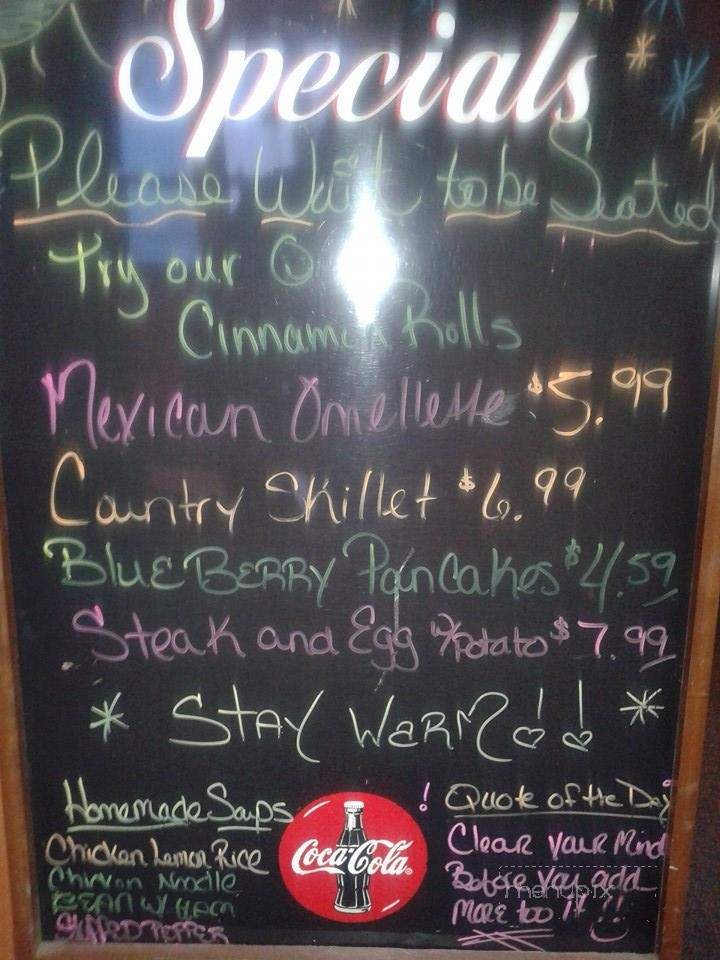 Specials
Please Wait to be Seated
Try our
Cinnamon Rolls
Mexican Omellette $5.99
Country Skillet $6.99
BlueBERRY Pancakes $4.59
Steak and Egg w/Potato $7.99
* STAY WARM!! *
Homemade Soups
Chicken Lemon Rice
Chicken Noodle
BEAN W/ HAM
STUFFED PEPPER
Coca-Cola
! Quote of the Day
Clear Your Mind
Before You add
More too It!!
menupix